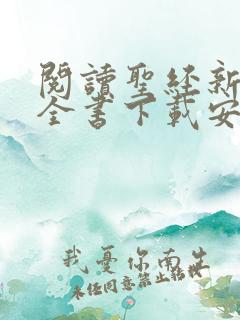 閱讀聖经新
全書下載安
我憂你南生
未经同意禁止转载